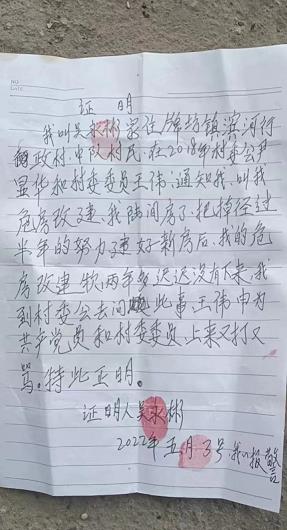 NO
DATE
证 明
我叫吴永彬家住牌坊镇滨河行
政村.中队村民.在2018年村委公尹
显华和村委委员王伟.通知我.叫我
危房改建.我陆间房子.把将经过
半年的努力建好新房后.我的危
房改建款两年多迟迟没有下来.我
到村委会去问此事.王伟申为
共产党员和村委委员.上来又打又
骂.特此正明。
证明人吴永彬
2022年五月3号我以报警